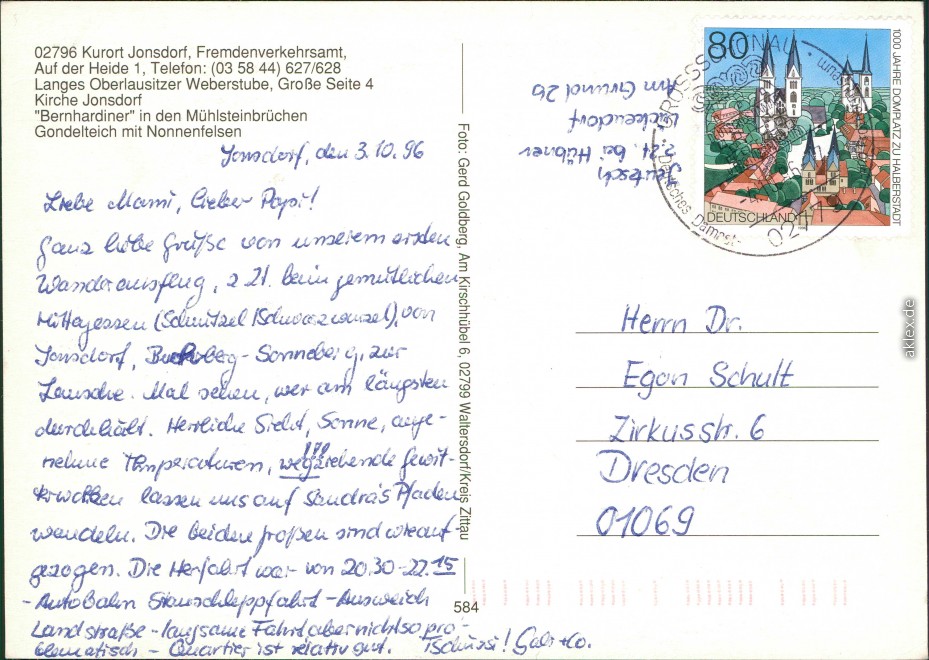 02796 Kurort Jonsdorf, Fremdenverkehrsamt,
Auf der Heide 1, Telefon: (03 58 44) 627/628
Langes Oberlausitzer Weberstube, Große Seite 4
Kirche Jonsdorf
"Bernhardiner" in den Mühlsteinbrüchen
Gondelteich mit Nonnenfelsen
Jonsdorf, den 3.10.96
Liebe Mami, lieber Papi!
Ganz liebe Grüße von unserem ersten
Wanderausflug, z Zt. beim gemütlichen
Mittagessen (Schnitzel /Schwarzwurzel), von
Jonsdorf, Buchberg - Sonneberg, zur
Lausche. Mal sehen, wer am längsten
durchhält. Herrliche Sicht, Sonne, ange-
nehme Temperaturen, wegziehende Gewit-
terwolken lassen uns auf Sandra's Pfaden
wandeln. Die beiden großen sind wie auf-
gezogen. Die Herfahrt war von 20.30-22.15
- Autobahn Stauschleppfahrt - Ausweich
Landstraße - langsame Fahrt aber nicht so pro-
blematisch - Quartier ist relativ gut. Tschüssi! Gabi + Co.
Foto: Gerd Goldberg, Am Kirschhübel 6, 02799 Waltersdorf/Kreis Zittau
584
Deutsch
z.Zt. bei Hübner
Lückendorf
Am Grund 26
80
1000 JAHRE DOMPLATZ ZU HALBERSTADT
DEUTSCHLAND
GROSSSCHÖNAU
Deutsches Dampf-
Herrn Dr.
Egon Schult
Zirkusstr. 6
Dresden
01069
aklex.de